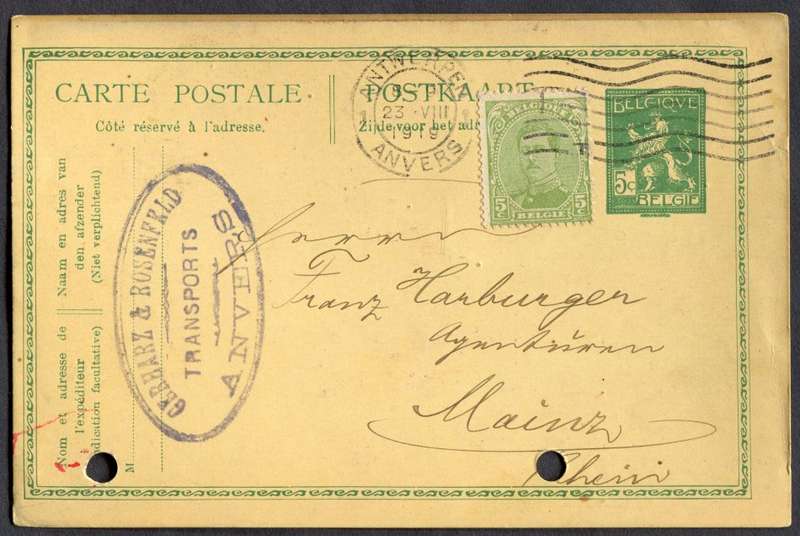 CARTE POSTALE
Côté réservé à l'adresse.
POSTKAART
Zijde voor het adr
ANTWERPEN
23 VIII
1919
ANVERS
BELGIQUE
5c
BELGIË
BELGIQUE
5 c 5 c
BELGIE
Naam en adres van
den afzender
(Niet verplichtend)
Nom et adresse de
l'expéditeur
(indication facultative)
M
GERHARZ & ROSENFELD
TRANSPORTS
ANVERS
Herrn
Franz Harburger
Agenturen
Mainz
Rhein